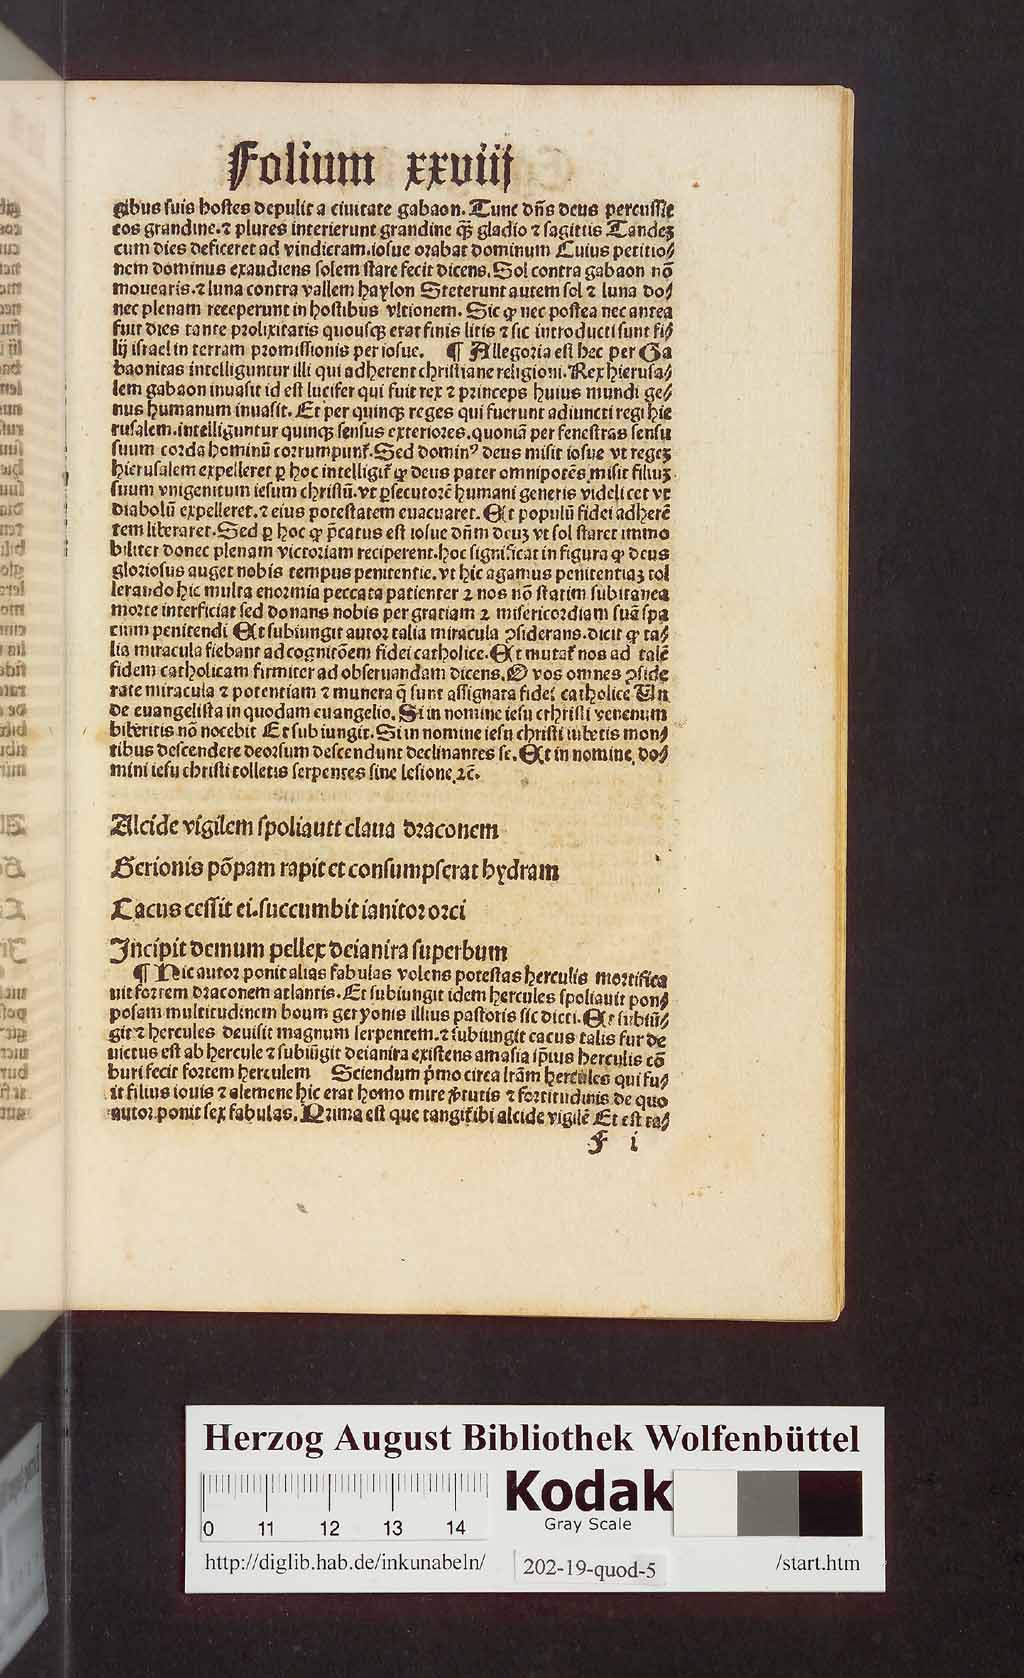 Folium xxviij
gibus suis hostes depulit a ciuitate gabaon. Tunc dñs deus percussit
eos grandine. ⁊ plures interierunt grandine qȝ gladio ⁊ sagittis Tandeȝ
cum dies deficeret ad vindictam. iosue orabat dominum Cuius petitio⸗
nem dominus exaudiens solem stare fecit dicens. Sol contra gabaon nõ
mouearis. ⁊ luna contra vallem haylon Steterunt autem sol ⁊ luna do⸗
nec plenam receperunt in hostibus vltionem. Sic ꝙ nec postea nec antea
fuit dies tante prolixitatis quousqȝ erat finis litis ⁊ sic introducti sunt fi⸗
lij israel in terram promissionis per iosue. ¶ Allegoria est hec per Ga
baonitas intelliguntur illi qui adherent christiane religioni. Rex hierusa⸗
lem gabaon inuasit id est lucifer qui fuit rex ⁊ princeps huius mundi ge⸗
nus humanum inuasit. Et per quinqȝ reges qui fuerunt adiuncti regi hie
rusalem. intelliguntur quinqȝ sensus exteriores. quoniã per fenestras sensu
suum corda hominũ corrumpunt̃. Sed dominꝰ deus misit iosue vt regeȝ
hierusalem expelleret ꝑ hoc intelligit̃ ꝙ deus pater omnipotẽs misit filiuȝ
suum vnigenitum iesum christũ. vt ꝑsecutorẽ humani generis videlicet vt
diabolũ expelleret. ⁊ eius potestatem euacuaret. Et populũ fidei adherẽ
tem liberaret. Sed ꝑ hoc ꝙ p̃catus est iosue dñm deuȝ vt sol staret immo
biliter donec plenam victoriam reciperent. hoc significat in figura ꝙ deus
gloriosus auget nobis tempus penitentie. vt hic agamus penitentiaȝ tol
lerando hic multa enormia peccata patienter ⁊ nos nõ statim subitanea
morte interficiat sed donans nobis per gratiam ⁊ misericordiam suã spa
cium penitendi Et subiungit autor talia miracula ꝯsiderans. dicit ꝙ ta⸗
lia miracula fiebant ad cognitõem fidei catholice. Et mutat̃ nos ad talẽ
fidem catholicam firmiter ad obseruandam dicens. O vos omnes ꝯside
rate miracula ⁊ potentiam ⁊ munera q̃ sunt assignata fidei catholice Un
de euangelista in quodam euangelio. Si in nomine iesu crhristi venenum
biberitis nõ nocebit Et subiungit. Si in nomine iesu christi iubetis mon⸗
tibus descendere deorsum descendunt declinantes se. Et in nomine do⸗
mini iesu christi tolletis serpentes sine lesione ⁊c̃.
Alcide vigilem spoliautt claua draconem
Gerionis põpam rapit et consumpserat hydram
Cacus cessit ei. succumbit ianitor orci
Incipit demum pellex deianira superbum
¶ Hic autor ponit alias fabulas volens potestas herculis mortifica
uit fortem draconem atlantis. Et subiungit idem hercules spoliauit pon⸗
posam multitudinem boum geryonis illius pastoris sic dicti. Et subiũ⸗
git ⁊ hercules deuisit magnum serpentem. ⁊ subiungit cacus talis fur de
uictus est ab hercule ⁊ subiũgit deianira existens amasia ip̃ius herculis cõ
buri fecit fortem herculem Sciendum p̃mo circa lr̃am hercules qui fu⸗
it filius iouis ⁊ alcmene hic erat homo mire ṽtutis ⁊ fortitudinis de quo
autor ponit sex fabulas. Prima est que tangit̃ ibi alcide vigilẽ Et est ta⸗
F i
Herzog August Bibliothek Wolfenbüttel
0 11 12 13 14
Kodak
Gray Scale
http://diglib.hab.de/inkunabeln/ 202-19-quod-5 /start.htm